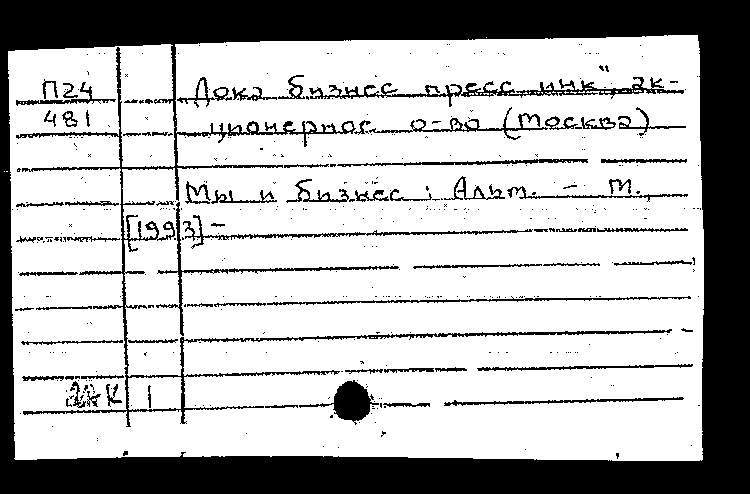 П24 Дока бизнес пресс инк", ак-
481 ционерное о-во (Москва)
Мы и бизнес : Альм. - М.,
[1993] -
К 1